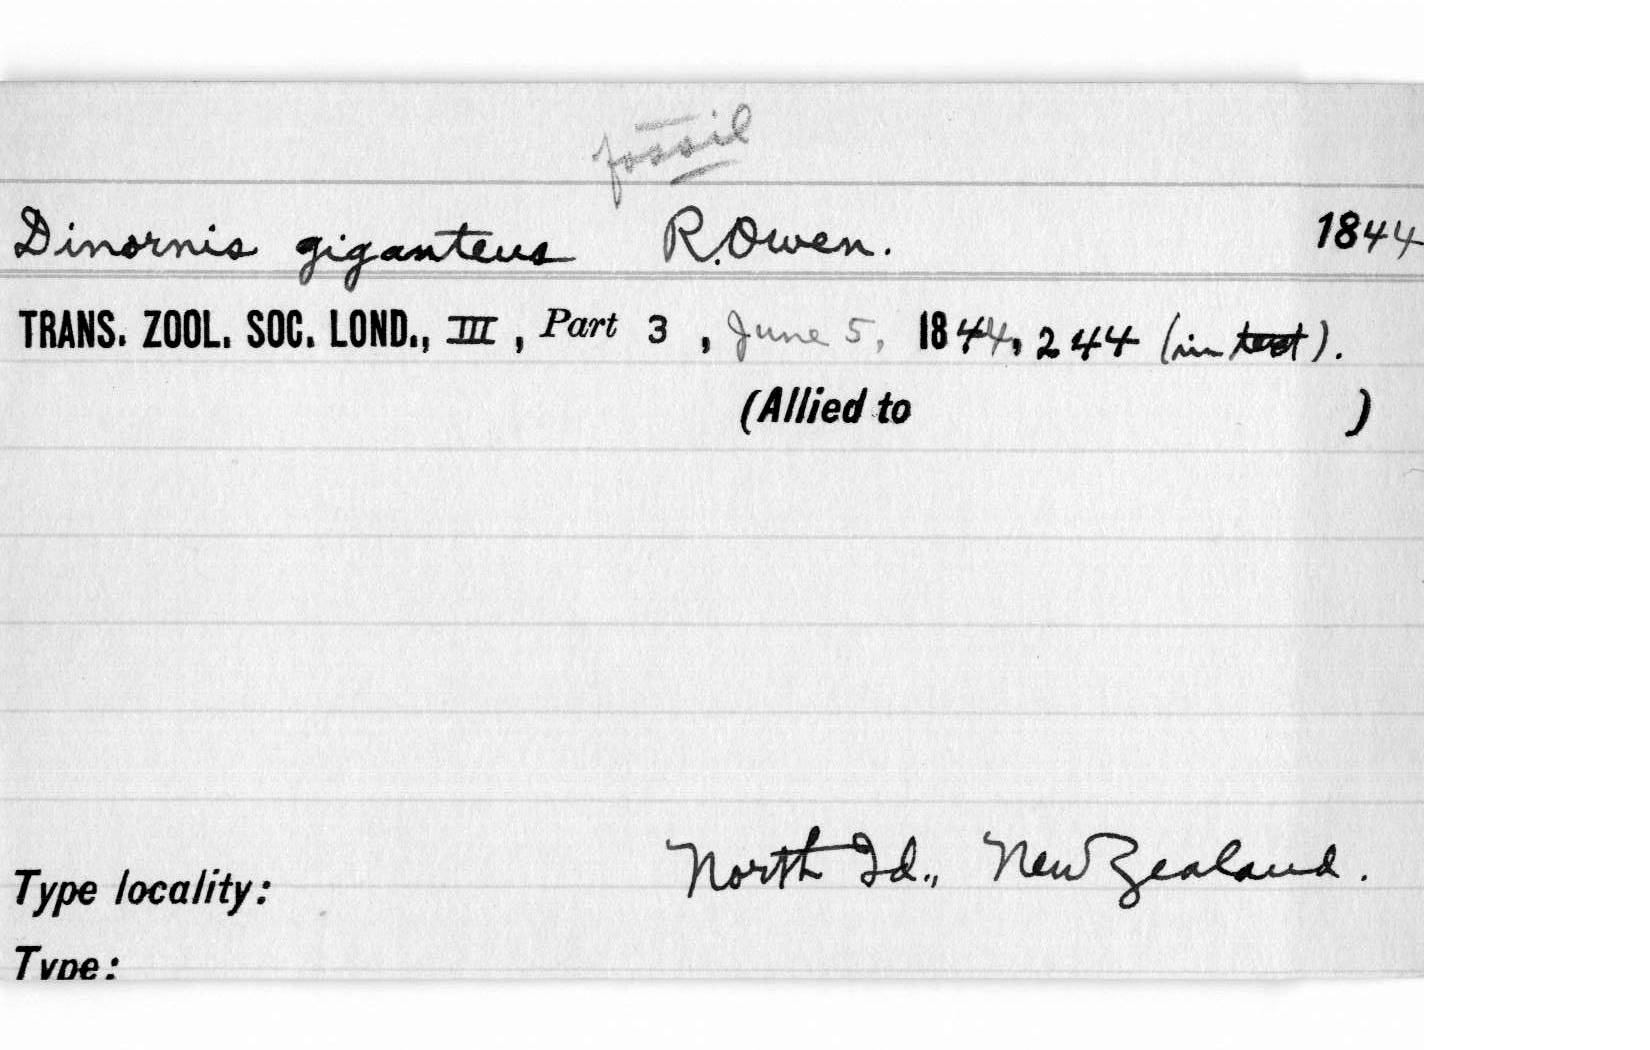 fossil
Dinornis giganteus R. Owen. 1844
TRANS. ZOOL. SOC. LOND., III, Part 3, June 5, 1844, 244 (in text).
(Allied to )
Type locality: North Id., New Zealand.
Type: